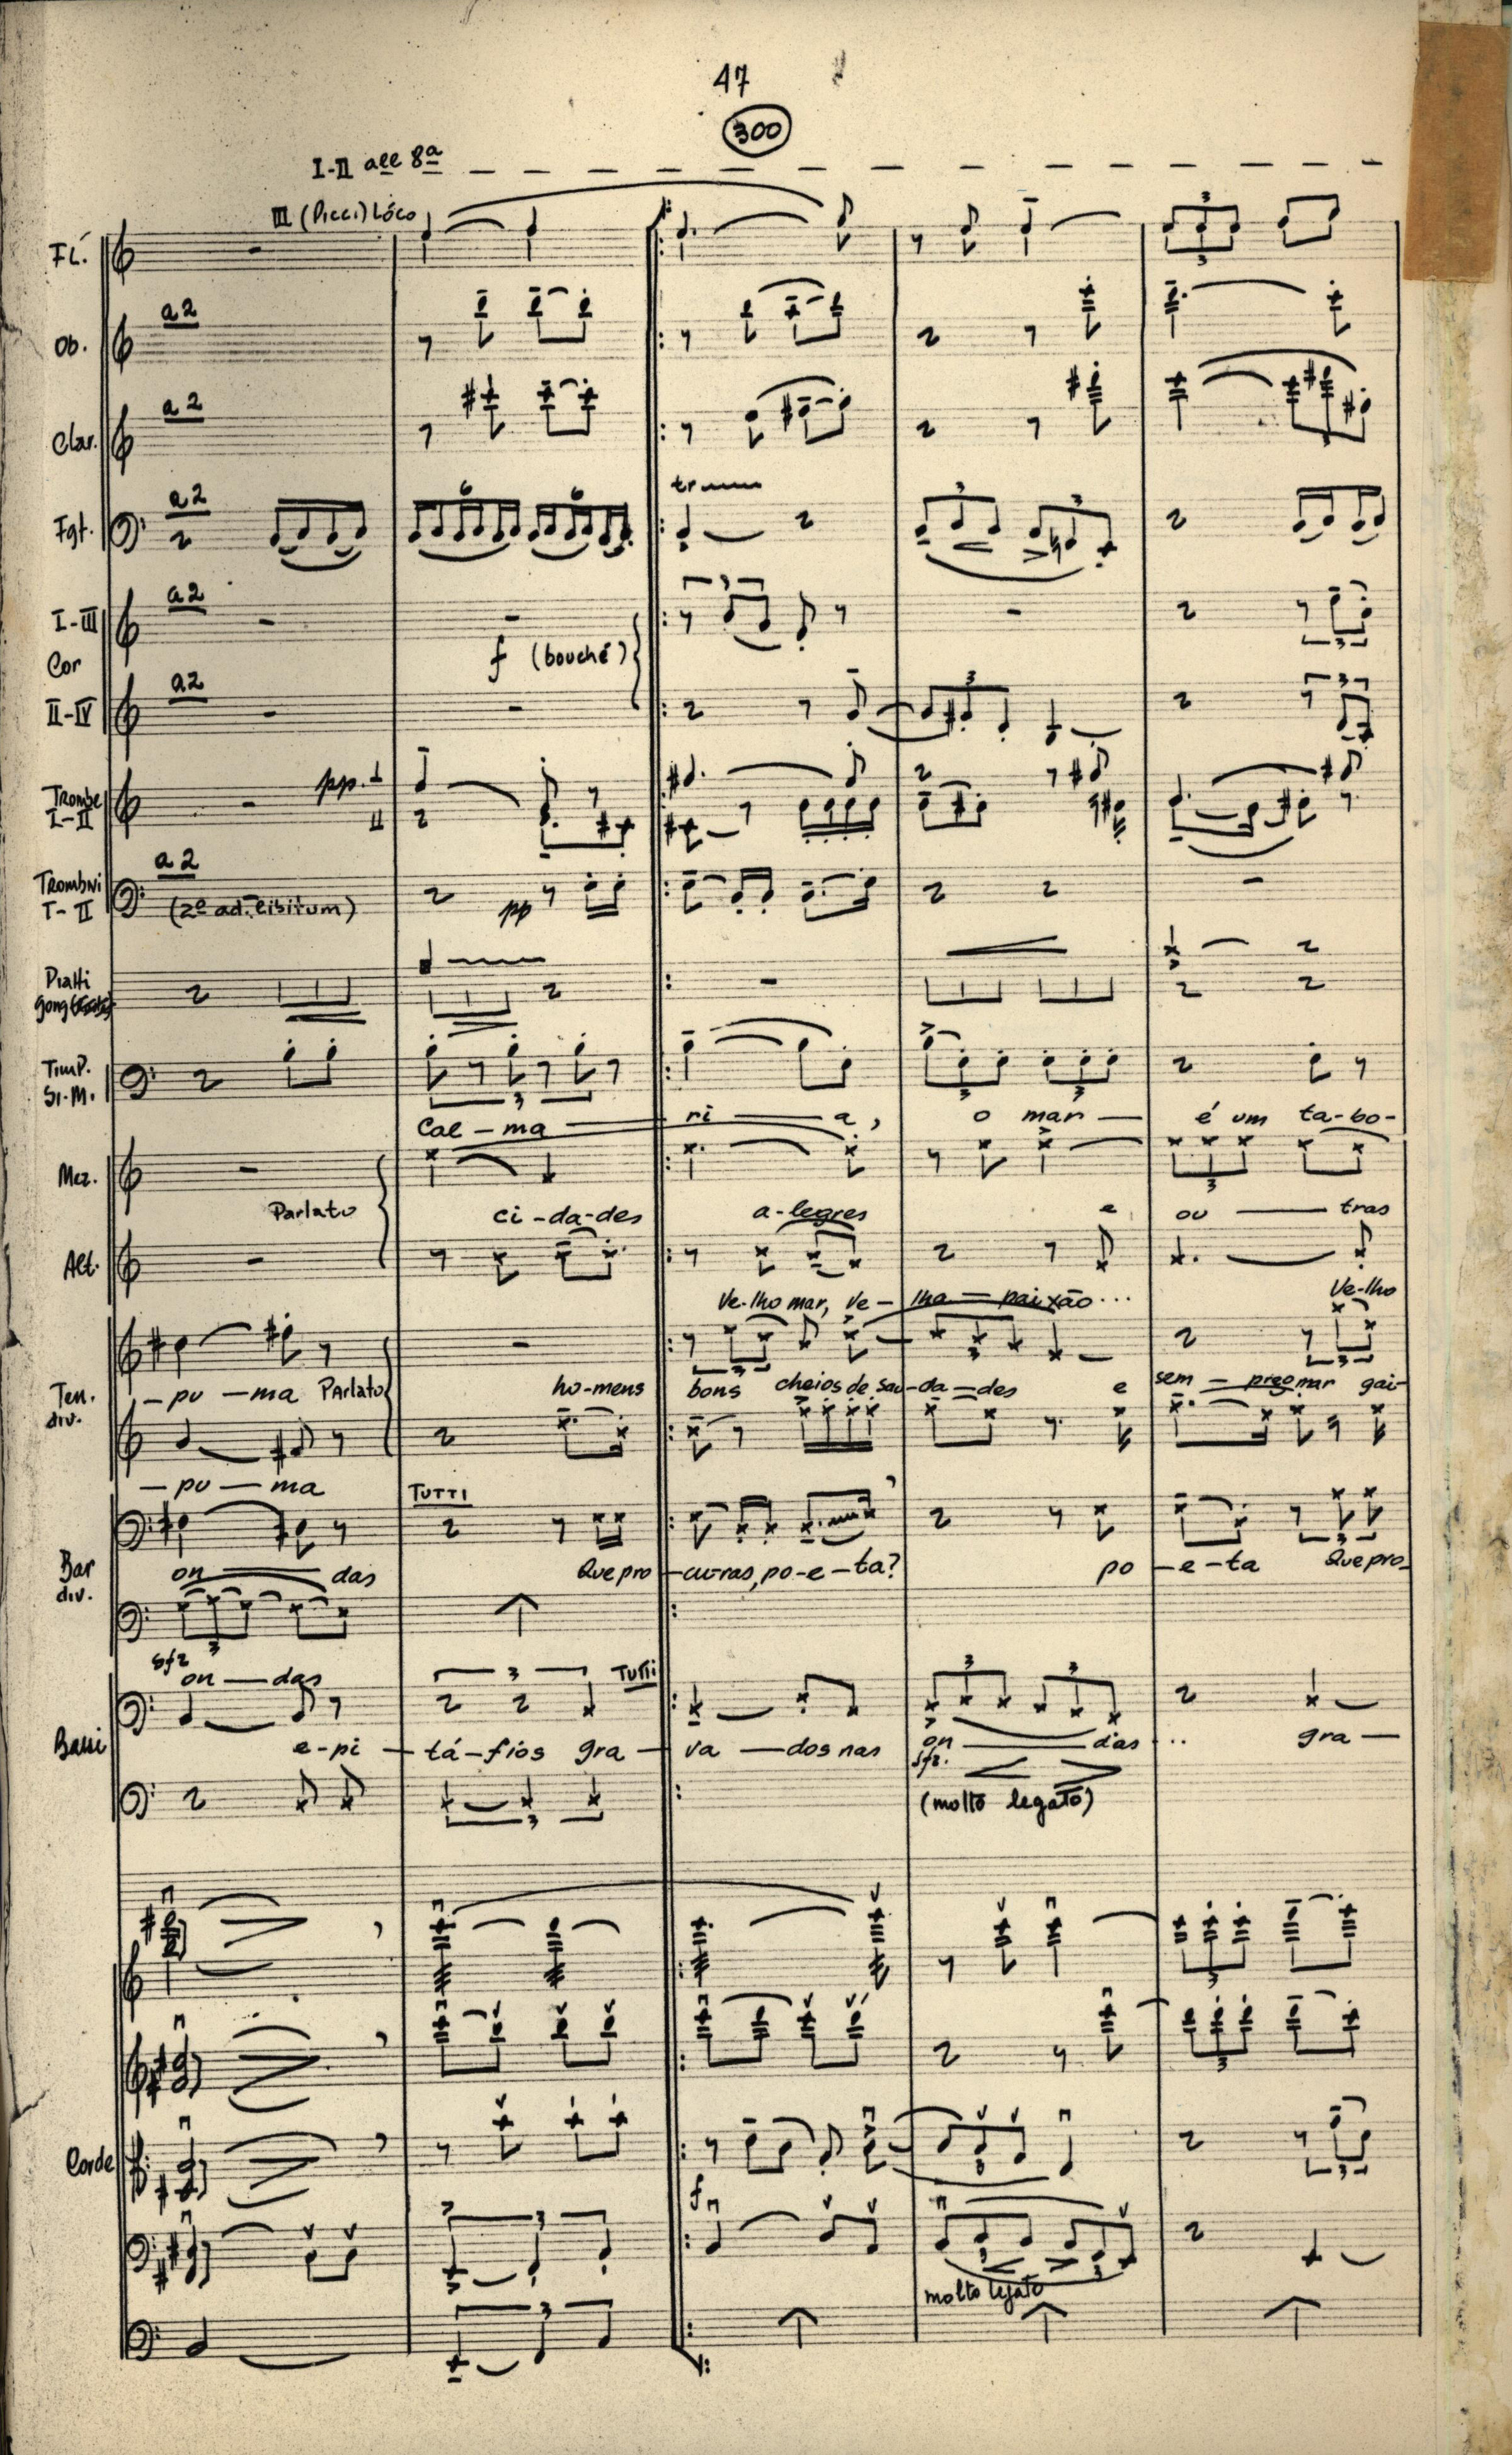 47
300
I-II all 8a
III (Picci) Lóco
Fl.
a2
Ob.
a2
Clar.
6 6
a2
tr
3 3
Fgt.
a2
3
I-III
Cor
f (bouché)
a2
3 3
II-IV
pp. I
Trombe
I-II
II
a2
Tromboni
I-II
(2º ad libitum)
pp
Piatti
gong
Timp.
3 3 3
Si.M.
Cal-ma ri a, o mar é um ta-bo-
Mez.
3
Parlato
ci-da-des a-legres e ou tras
Alt.
Ve-lho mar, ve-lha paixão... Ve-lho
3 3 3
-pu-ma Parlato ho-mens bons cheios de sau-da-des e sem-pre o mar gai-
Ten.
div.
-pu-ma
TUTTI
Bar
div.
on das Que pro-cu-ras, po-e-ta? po-e-ta Que pro-
3
sfz
on-das
3 TUTTI 3 3
Bassi
e-pi-tá-fios gra-va-dos nas on das... gra-
sfz.
3
(molto legato)
3
3
Corde
3
f
3
3
molto legato
3